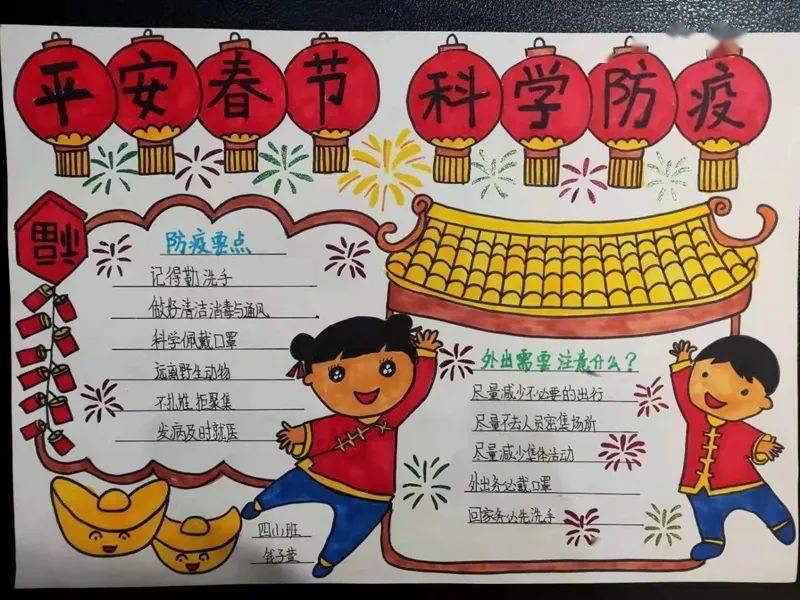 平安春节 科学防疫
福
防疫要点
记得勤洗手
做好清洁消毒与通风
科学佩戴口罩
远离野生动物
不扎堆 拒聚集
发病及时就医
外出需要注意什么？
尽量减少不必要的出行
尽量不去人员密集场所
尽量减少集体活动
外出务必戴口罩
回家务必先洗手
四(1)班